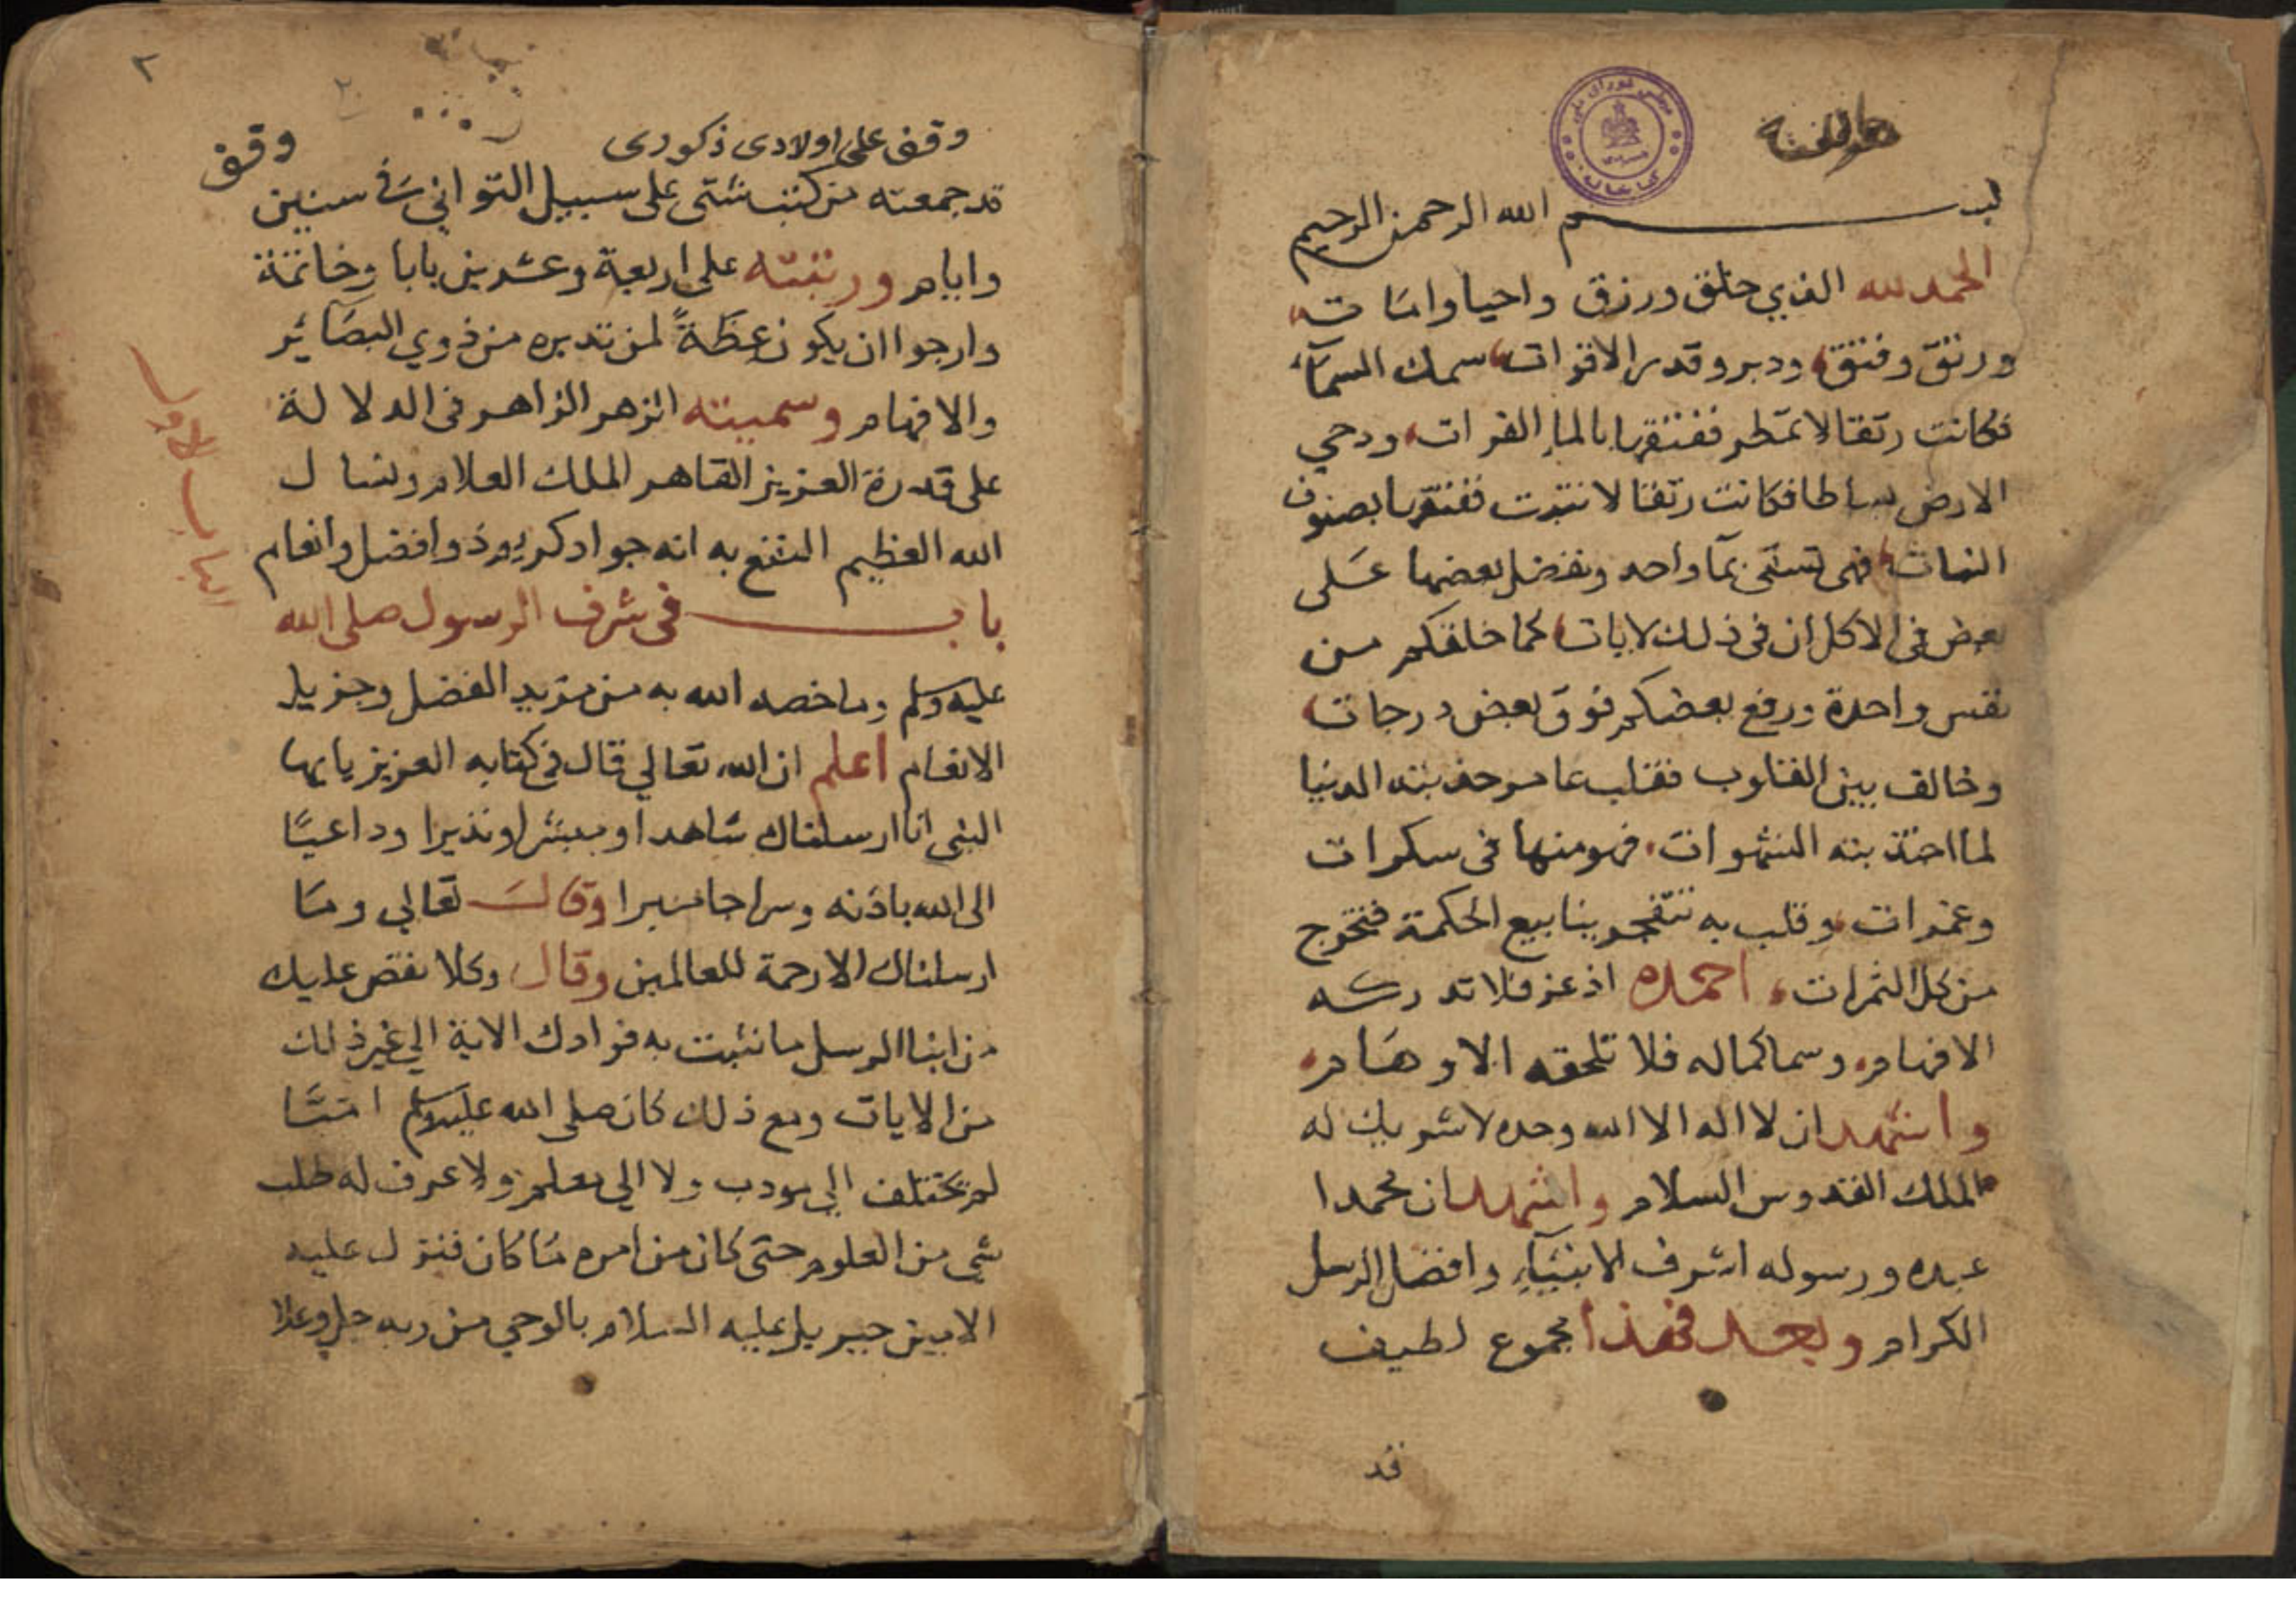 بسم الله الرحمن الرحيم
الحمد لله الذي خلق ورزق واحيا وامات
ورتق وفتق ودبر وقدر الاقوات سمك السمآء
فكانت رتقا لا تمطر ففتقها بالماء الفرات ودحي
الارض بساطا فكانت رتقا لا تنبت ففتقها بصنوف
النبات فهي تسقى بمآ واحد ونفضل بعضها على
بعض في الاكل ان في ذلك لايات كما خلقكم من
نفس واحدة ورفع بعضكم فوق بعض درجات
وخالف بين القلوب فقلب عامر حذبته الدنيا
لما اخذ بته الشهوات فهو منها في سكرات
وغمرات وقلب به تتفجر ينابيع الحكمة فتخرج
من كل الثمرات احمده اذ عز فلا تدركه
الافهام وسما كماله فلا تلحقه الاوهام
واشهد ان لا اله الا الله وحده لا شريك له
الملك القدوس السلام واشهد ان محمدا
عبده ورسوله اشرف الانبيآء وافضل الرسل
الكرام وبعد فهذا مجموع لطيف
قد
٢
وقف على اولادى ذكورى
وقف
قد جمعته من كتب شتى على سبيل التواني في سنين
وايام ورتبته على اربعة وعشرين بابا وخاتمة
وارجوا ان يكون عظة لمن تدبره من ذوي البصآئر
والافهام وسميته الزهر الزاهر فى الدلالة
على قدرة العزيز القاهر الملك العلام ونسال
الله العظيم النفع به انه جواد كريم ذو افضل وانعام
باب في شرف الرسول صلى الله
عليه وسلم وما خصه الله به من مزيد الفضل وجزيل
الانعام اعلم ان الله تعالي قال في كتابه العزيز يايها
النبي انا ارسلناك شاهدا ومبشرا ونذيرا وداعيا
الى الله باذنه وسراجا منيرا وقال تعالي وما
ارسلناك الا رحمة للعالمين وقال وكلا نقص عليك
من انبا الرسل ما نثبت به فوادك الاية الي غير ذلك
من الايات ومع ذلك كان صلى الله عليه وسلم اميا
لم يختلف الي مودب ولا الي معلم ولا عرف له طلب
شي من العلوم حتى كان من امره ما كان فنزل عليه
الامين جبريل عليه السلام بالوحي من ربه جل وعلا
الباب الاول